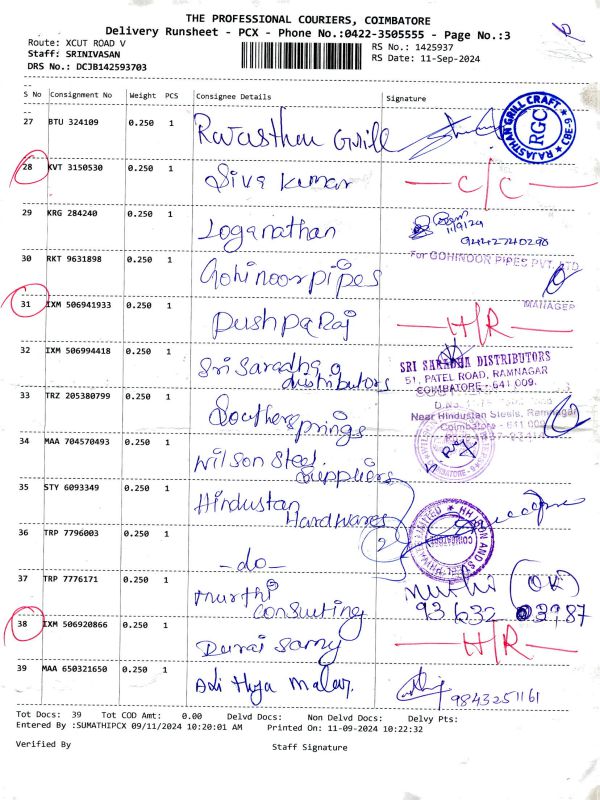 THE PROFESSIONAL COURIERS, COIMBATORE
Delivery Runsheet - PCX - Phone No.:0422-3505555 - Page No.:3
Route: XCUT ROAD V
RS No.: 1425937
Staff: SRINIVASAN
RS Date: 11-Sep-2024
DRS No.: DCJB142593703
S No Consignment No Weight PCS Consignee Details Signature
27 BTU 324109 0.250 1 Rajasthan Grill
RAJASTHAN GRILL CRAFT
RGC
CBE-9
28 KVT 3150530 0.250 1 Siva Kumar C/C
29 KRG 284240 0.250 1 Loganathan
11/9/24
9442740290
30 RKT 9631898 0.250 1 Gohinoor pipes
For GOHINOOR PIPES PVT LTD
MANAGER
31 IXM 506941933 0.250 1 Pushpa Raj H/R
32 IXM 506994418 0.250 1 Sri Saradha distributors
SRI SARADHA DISTRIBUTORS
51, PATEL ROAD, RAMNAGAR
COIMBATORE - 641 009.
33 TRZ 205380799 0.250 1 Souther springs
Near Hindustan Steels, Ramnagar
Coimbatore - 641 009
34 MAA 704570493 0.250 1 Wilson Steel Suppliers
35 STY 6093349 0.250 1 Hindustan Hardwares
2
COIMBATORE
36 TRP 7796003 0.250 1 -do-
37 TRP 7776171 0.250 1 Murthi consulting
Muthi (OK)
93632 03987
38 IXM 506920866 0.250 1 Durai Samy H/R
39 MAA 650321650 0.250 1 Adithya Malar.
9843251161
Tot Docs: 39 Tot COD Amt: 0.00 Delvd Docs: Non Delvd Docs: Delvy Pts:
Entered By :SUMATHIPCX 09/11/2024 10:20:01 AM Printed On: 11-09-2024 10:22:32
Verified By Staff Signature